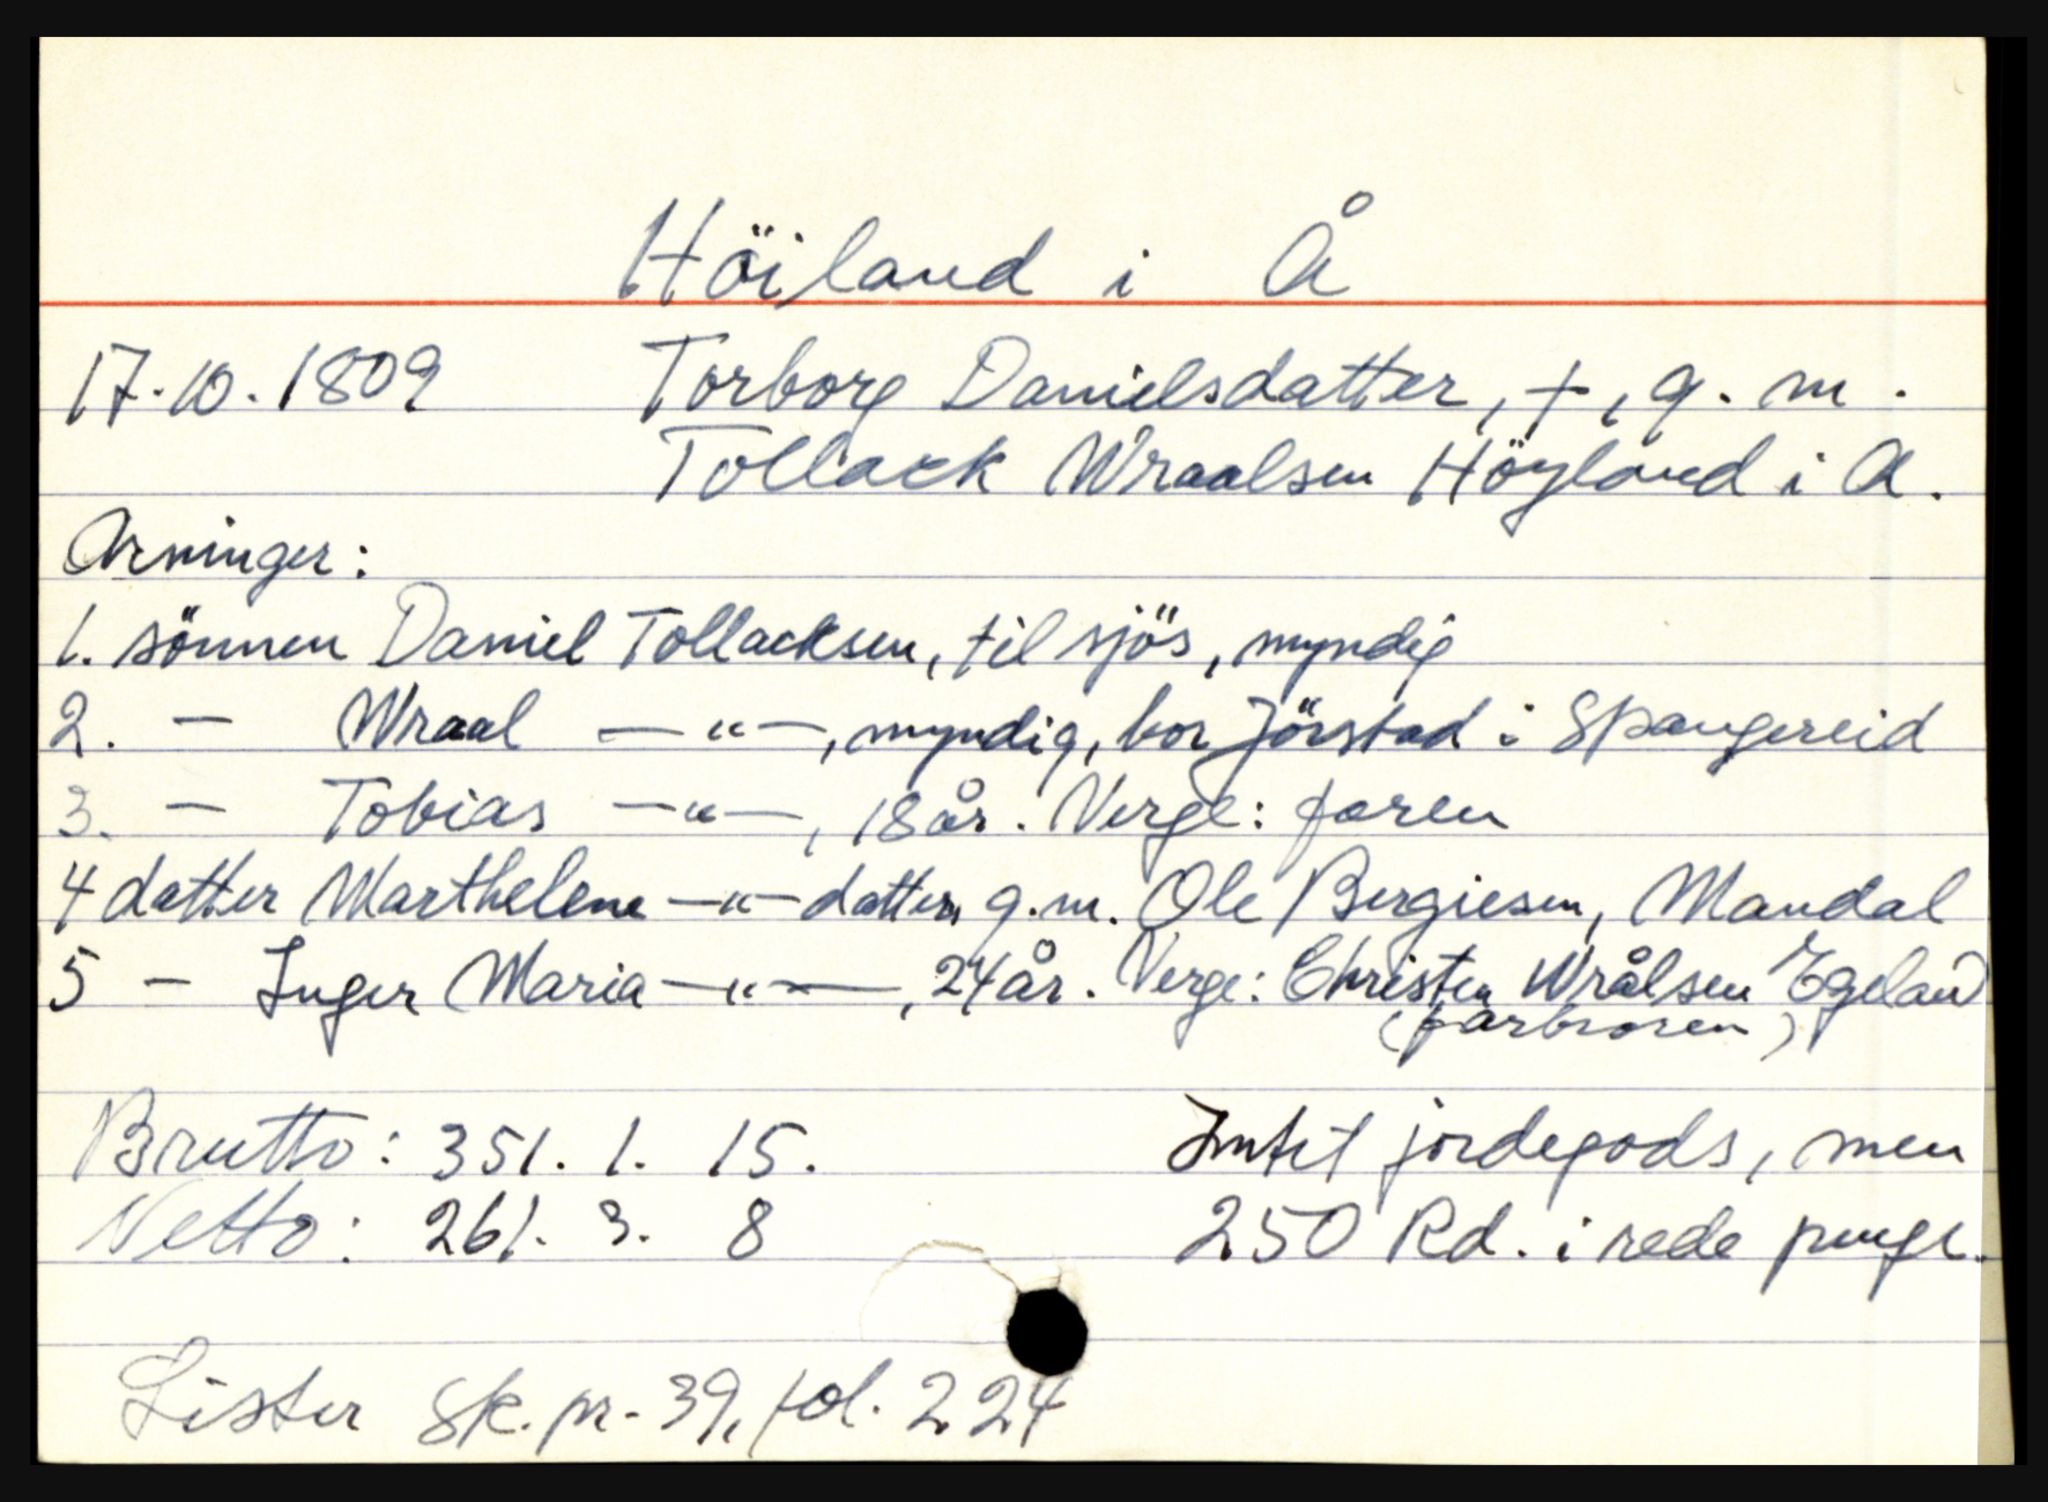 Höiland i Å
17.10.1809 Torborg Danielsdatter, +, g. m.
Tollack Wraalsen Höyland i A.
Arvinger:
1. sönnen Daniel Tollacksen, til sjös, myndig
2. — Wraal —"—, myndig, bor Jörstad i Spangereid
3. — Tobias —"—, 18 år. Verge: faren
4 datter Marthelene —"— datter, g.m. Ole Bergiesen, Mandal
5 — Inger Maria —"—, 24 år. Verge: Christen Wrålsen Egeland
(farbroren)
Brutto: 351. 1. 15. Intet jordegods, men
Netto: 261. 3. 8 250 Rd. i rede penge.
Lister Sk. pr. 39, fol. 224